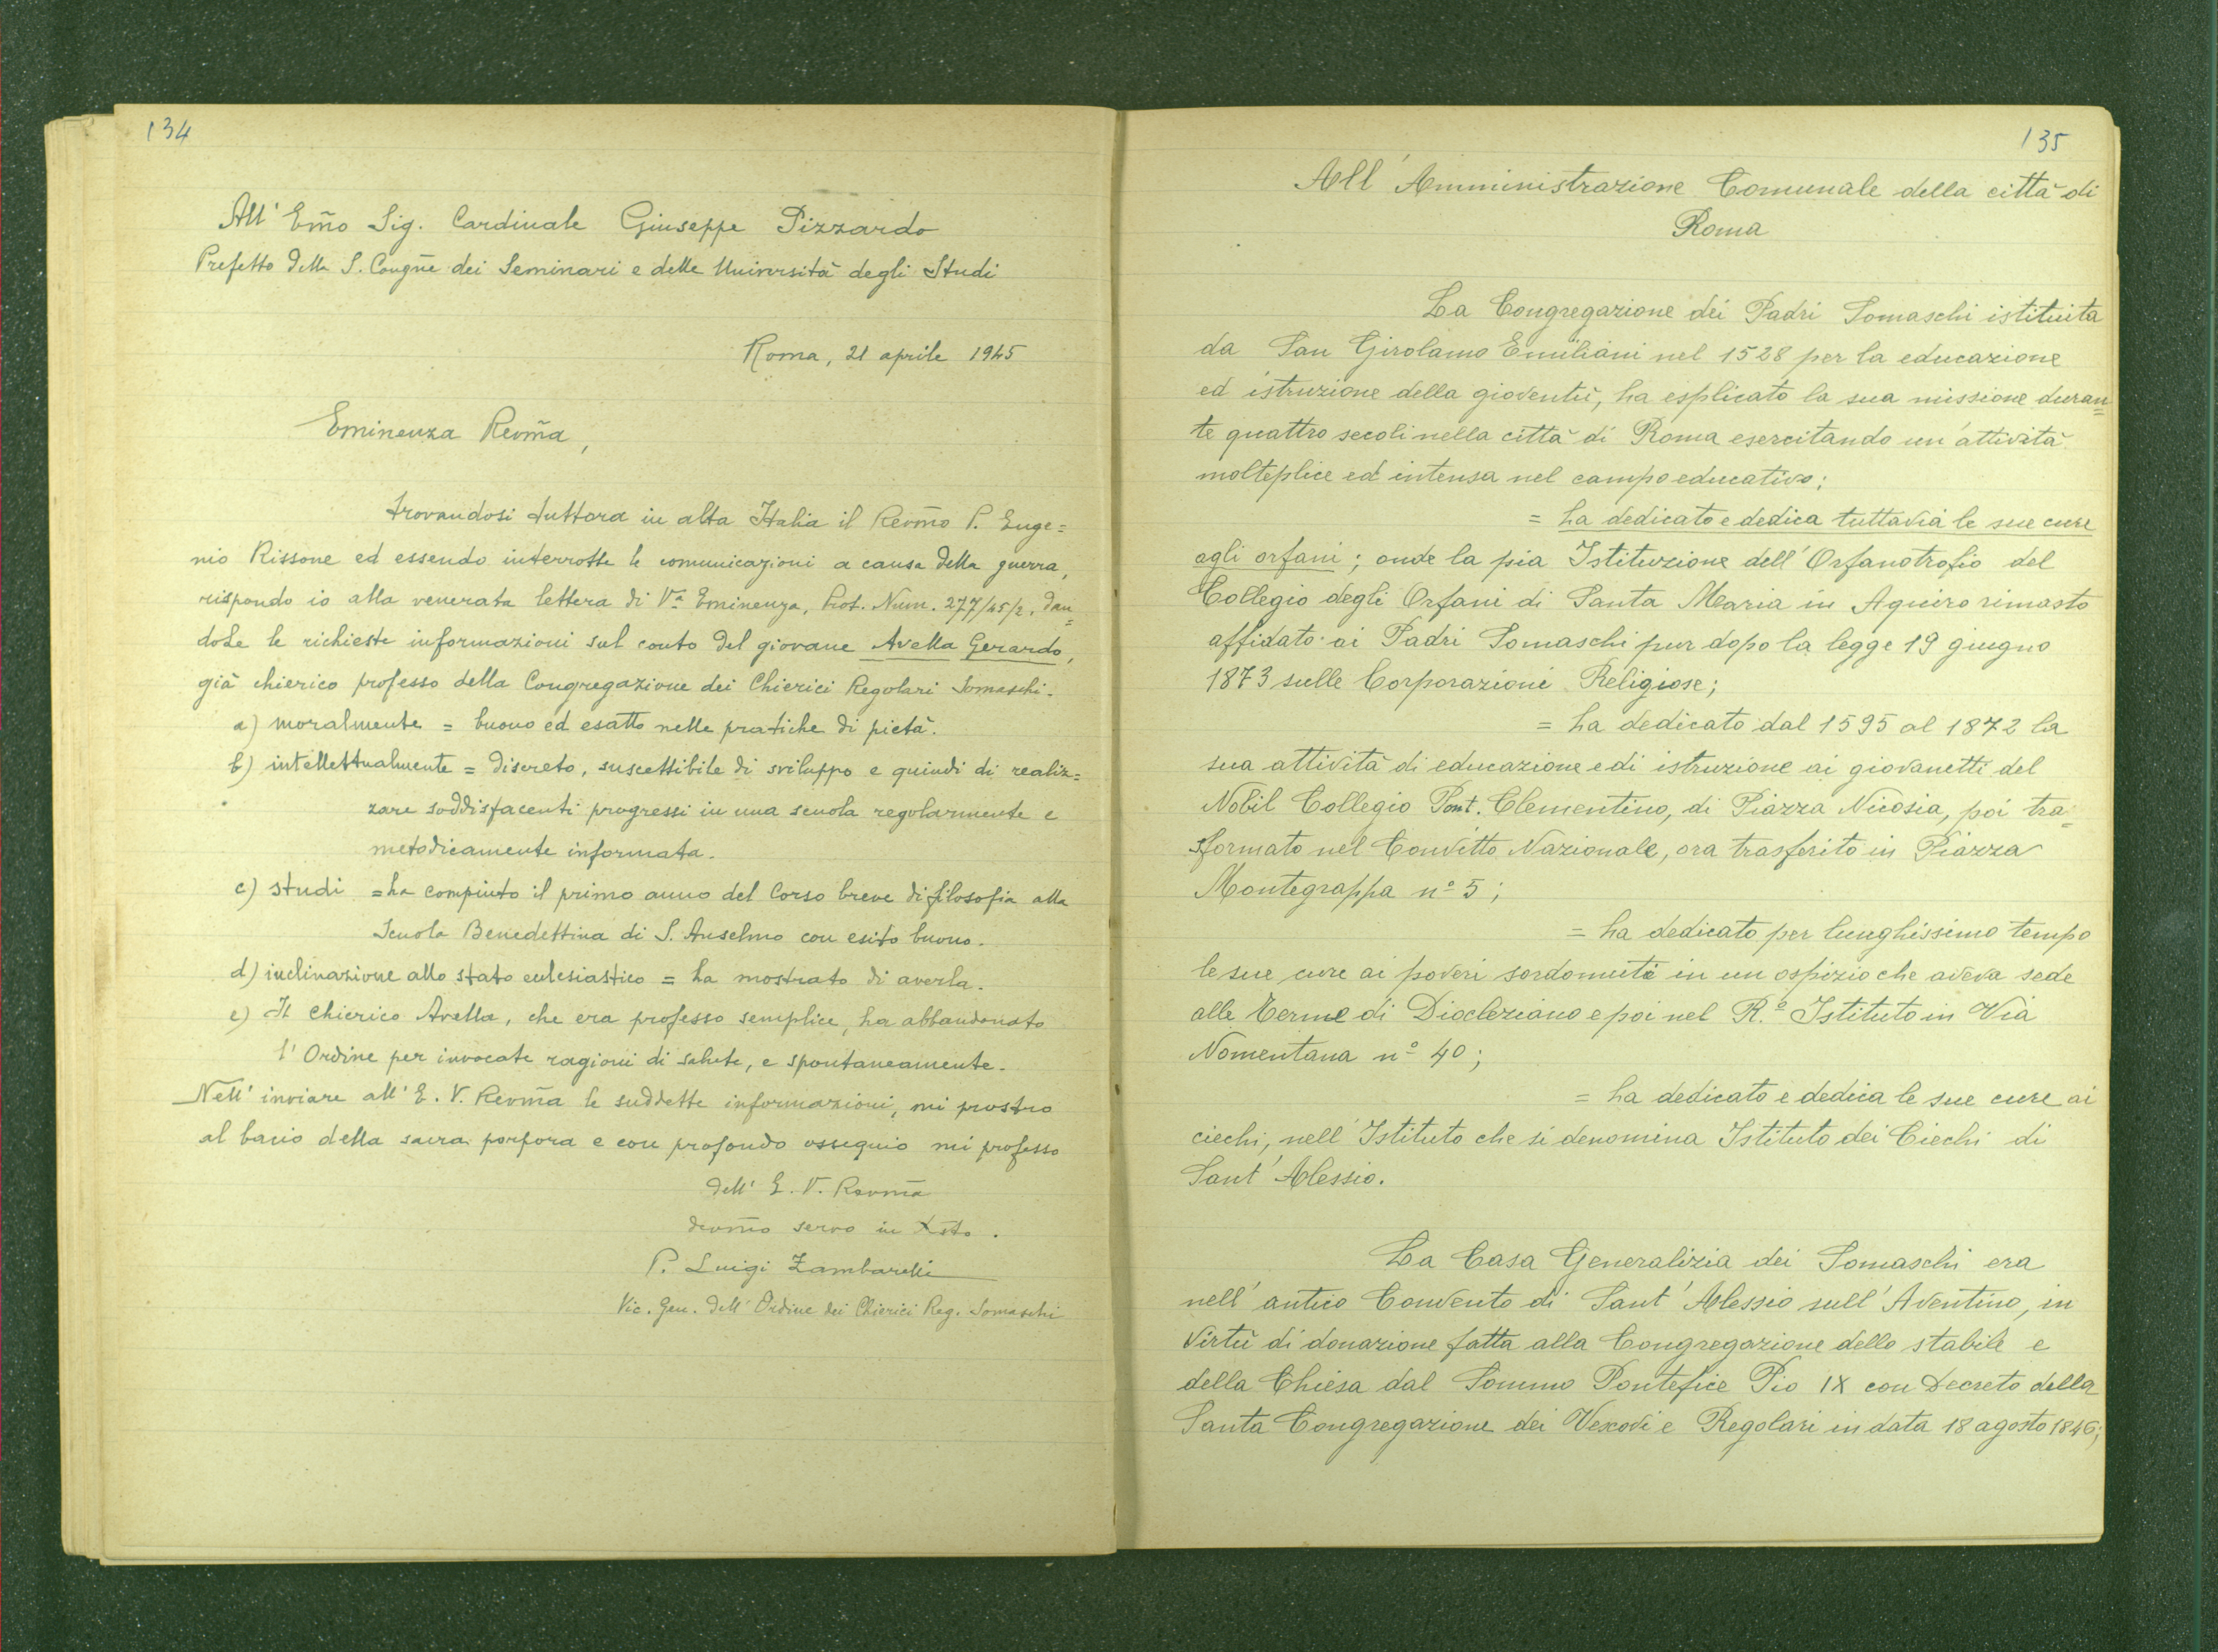 134
All' Em̃o Sig. Cardinale Giuseppe Pizzardo
Prefetto della S. Congñe dei Seminari e delle Università degli Studi
Roma, 21 aprile 1945
Eminenza Revm̃a,
trovandosi tuttora in alta Italia il Revm̃o P. Euge=
nio Rissone ed essendo interrotte le comunicazioni a causa della guerra,
rispondo io alla venerata lettera di Vª Eminenza, Prot. Num. 277/45/2, dan=
doLe le richieste informazioni sul conto del giovane Avella Gerardo,
già chierico professo della Congregazione dei Chierici Regolari Somaschi.
a) moralmente = buono ed esatto nelle pratiche di pietà.
b) intellettualmente = discreto, suscettibile di sviluppo e quindi di realiz=
zare soddisfacenti progressi in una scuola regolarmente e
metodicamente informata.
c) studi = ha compiuto il primo anno del Corso breve di filosofia alla
Scuola Benedettina di S. Anselmo con esito buono.
d) inclinazione allo stato ecclesiastico = ha mostrato di averla.
e) Il chierico Avella, che era professo semplice, ha abbandonato
l'Ordine per invocate ragioni di salute, e spontaneamente.
Nell' inviare all' E. V. Revm̃a le suddette informazioni, mi prostro
al bacio della sacra porpora e con profondo ossequio mi professo
dell' E. V. Revm̃a
devm̃o servo in Xsto.
P. Luigi Zambarelli
Vic. Gen. dell' Ordine dei Chierici Reg. Somaschi
135
All' Amministrazione Comunale della città di
Roma
La Congregazione dei Padri Somaschi istituita
da San Girolamo Emiliani nel 1528 per la educazione
ed istruzione della gioventù, ha esplicato la sua missione duran=
te quattro secoli nella città di Roma esercitando un'attività
molteplice ed intensa nel campo educativo:
= ha dedicato e dedica tuttavia le sue cure
agli orfani; onde la pia Istituzione dell' Orfanotrofio del
Collegio degli Orfani di Santa Maria in Aquiro rimasto
affidato ai Padri Somaschi pur dopo la legge 19 giugno
1873 sulle Corporazioni Religiose;
= ha dedicato dal 1595 al 1872 la
sua attività di educazione e di istruzione ai giovanetti del
Nobil Collegio Pont. Clementino, di Piazza Nicosia, poi tra=
sformato nel Convitto Nazionale, ora trasferito in Piazza
Montegrappa nº 5;
= ha dedicato per lunghissimo tempo
le sue cure ai poveri sordomuti in un ospizio che aveva sede
alle Terme di Diocleziano e poi nel R.º Istituto in Via
Nomentana nº 40;
= ha dedicato e dedica le sue cure ai
ciechi, nell' Istituto che si denomina Istituto dei Ciechi di
Sant' Alessio.
La Casa Generalizia dei Somaschi era
nell' antico Convento di Sant' Alessio sull' Aventino, in
virtù di donazione fatta alla Congregazione dello stabile e
della Chiesa dal Sommo Pontefice Pio IX con Decreto della
Santa Congregazione dei Vescovi e Regolari in data 18 agosto 1846;